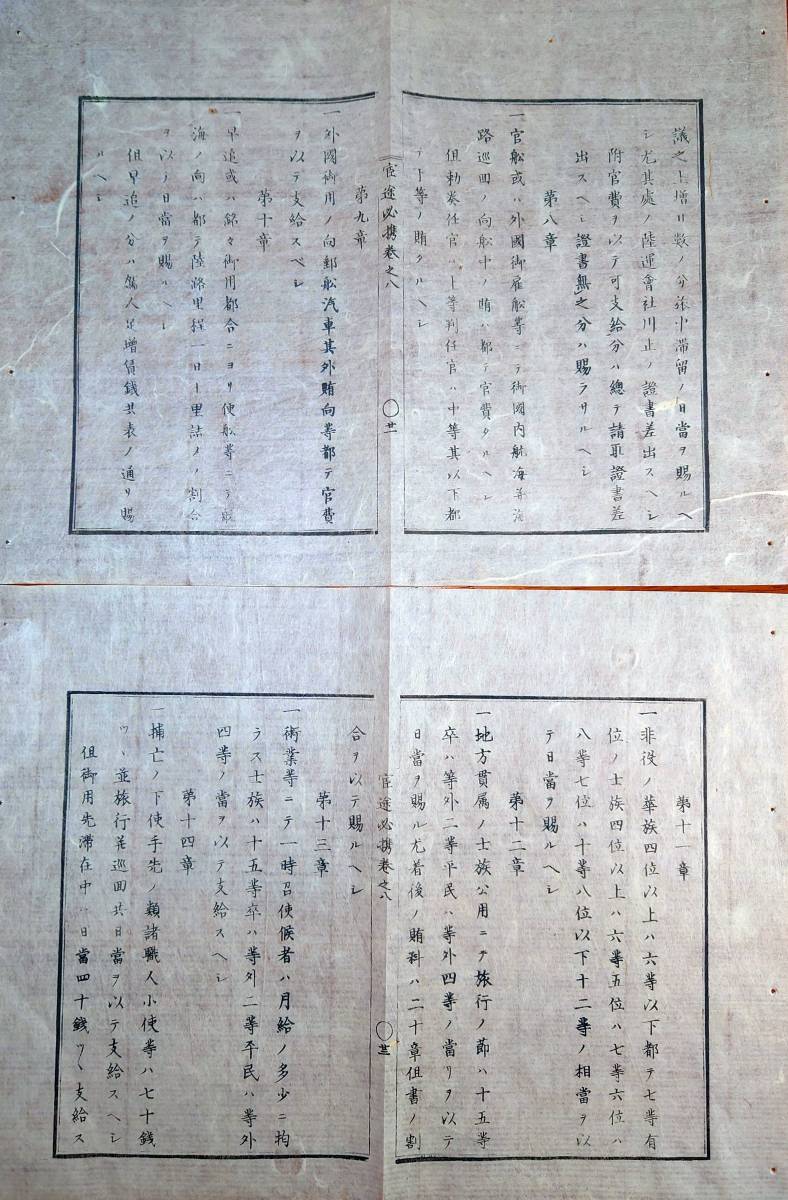 議之上増日数ノ分旅中滞留ノ日當ヲ賜ルヘ
シ尤其處ノ陸運會社川止ノ證書差出スヘシ
附官費ヲ以テ可支給分ハ總テ請取證書差
出スヘシ證書無之分ハ賜ラサルヘシ
第八章
一官舩或ハ外國御雇舩等ニテ御國内航海并海
路巡回ノ向舩中ノ賄ハ都テ官費タルヘシ
但勅奏任官ハ上等判任官ハ中等其以下都
テ下等ノ賄タルヘシ
宦途必携巻之八
〇廿一
第九章
一外國御用ノ向郵舩汽車其外賄向等都テ官費
ヲ以テ支給スベシ
第十章
一早追或ハ銘々御用都合ニヨリ便舩等ニテ航
海ノ向ハ都テ陸路里程一日十里詰メノ割合
ヲ以ノ日當ヲ賜ルヘシ
但早追ノ分ハ人足増賃錢共表ノ通リ賜
ルヘシ
第十一章
一非役ノ華族四位以上ハ六等以下都テ七等有
位ノ士族四位以上ハ六等五位ハ七等六位ハ
八等七位ハ十等八位以下十二等ノ相當ヲ以
テ日當ヲ賜ルヘシ
第十二章
一地方貫属ノ士族公用ニテ旅行ノ節ハ十五等
卒ハ等外二等平民ハ等外四等ノ當リヲ以テ
日當ヲ賜ル尤着後ノ賄料ハ二十章但書ノ割
宦途必携巻之八
〇廿二
合ヲ以テ賜ルヘシ
第十三章
一術業等ニテ一時召使候者ハ月給ノ多少ニ拘
ラス士族ハ十五等卒ハ等外二等平民ハ等外
四等ノ當ヲ以テ支給スヘシ
第十四章
一捕亡ノ下使手先ノ類諸職人小使等ハ七十錢
ツヽ並旅行并巡回共日當ヲ以テ支給スヘシ
但御用先滞在中ハ日當四十錢ツヽ支給ス